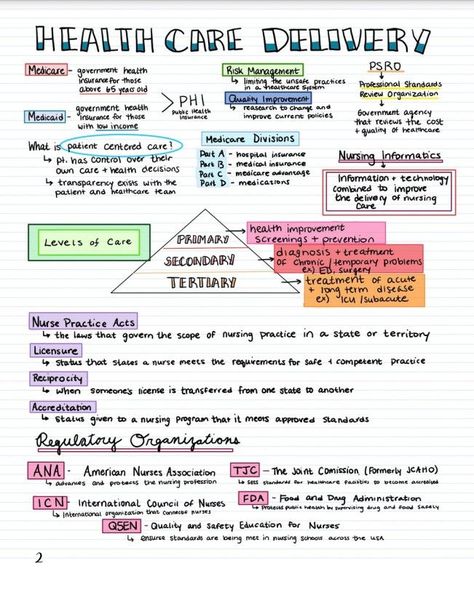 HEALTH CARE DELIVERY
Medicare - government health
insurance for those
above 65 years old
Medicaid - government health
insurance for those
with low income
PHI
Public Health
Insurance
Risk Management
↳ limiting the unsafe practices
in a healthcare system
Quality Improvement
↳ research to change and
improve current policies
PSRO
↓
Professional Standards
Review Organization
↓
Government agency
that reviews the cost
+ quality of healthcare
What is patient centered care?
↳ pt. has control over their
own care + health decisions
↳ transparency exists with the
patient and healthcare team
Medicare Divisions
Part A - hospital insurance
Part B - medical insurance
Part C - medicare advantage
Part D - medications
Nursing Informatics
↓
Information + technology
combined to improve
the delivery of nursing
care
Levels of Care
PRIMARY
health improvement
screenings + prevention
SECONDARY
diagnosis + treatment
of chronic / temporary problems
ex) ED, surgery
TERTIARY
treatment of acute
+ long term disease
ex) ICU / subacute
Nurse Practice Acts
↳ the laws that govern the scope of nursing practice in a state or territory
Licensure
↳ Status that states a nurse meets the requirements for safe + competent practice
Reciprocity
↳ When someone's license is transferred from one state to another
Accreditation
↳ Status given to a nursing program that it meets approved standards
Regulatory Organizations
ANA - American Nurses Association
↳ advances and protects the nursing profession
TJC - The Joint Comission (Formerly JCAHO)
↳ sets standards for healthcare facilities to become accredited
ICN - International Council of Nurses
↳ International organization that connects nurses
FDA - Food and Drug Administration
↳ Protects public health by supervising drug and food safety
QSEN - Quality and Safety Education for Nurses
↳ ensure standards are being met in nursing schools across the USA
2